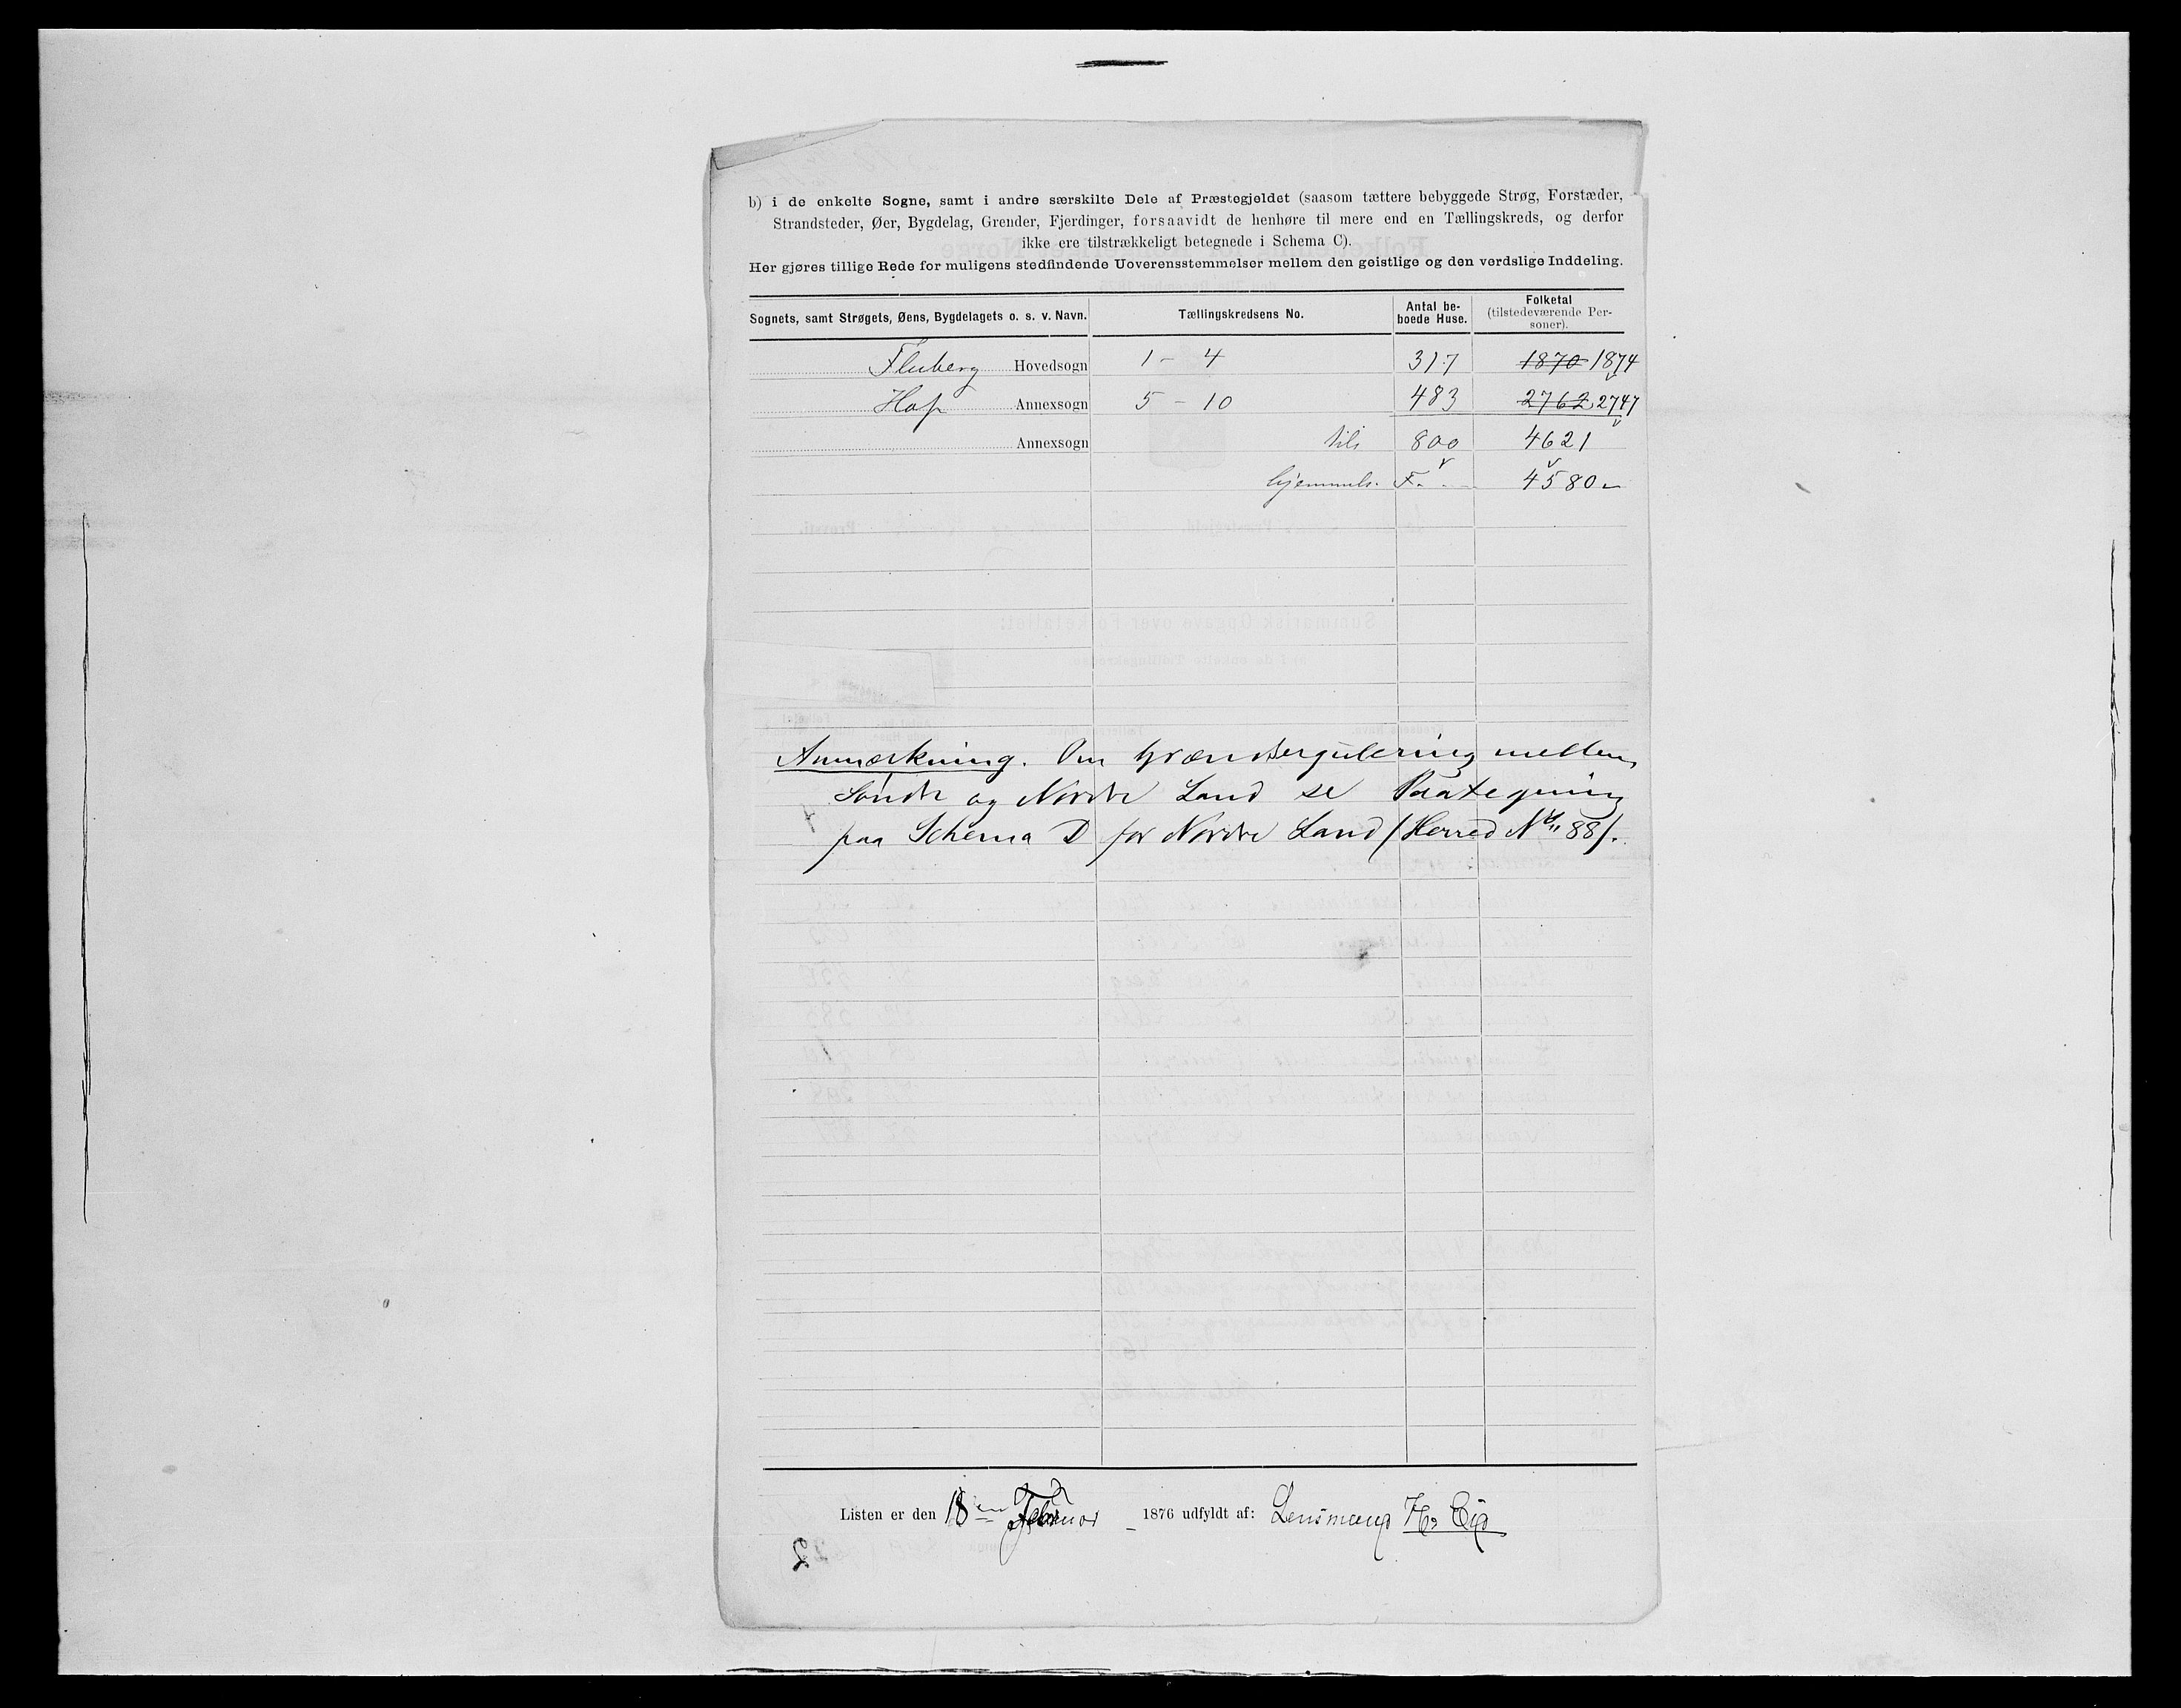 b) i de enkelte Sogne, samt i andre særskilte Dele af Præstegjeldet (saasom tættere bebyggede Strøg, Forstæder,
Strandsteder, Øer, Bygdelag, Grender, Fjerdinger, forsaavidt de henhøre til mere end en Tællingskreds, og derfor
ikke ere tilstrækkeligt betegnede i Schema C).
Her gjøres tillige Rede for muligens stedfindende Uoverensstemmelser mellem den geistlige og den verdslige Inddeling.
Sognets, samt Strøgets, Øens, Bygdelagets o. s. v. Navn. Tællingskredsens No. Antal be-boede Huse. Folketal (tilstedeværende Per-soner).
Fluberg Hovedsogn 1 - 4 317 1870 1874
Hof Annexsogn 5 - 10 483 2762 2747
Annexsogn tils 800 4621
hjemmeh. F. 4580
Anmærkning. Om Grændseregulering mellem
Søndre og Nordre Land se Paategning
paa Schema D for Nordre Land (Herred No 88).
Listen er den 18en Februar 1876 udfyldt af: Lensmand
2